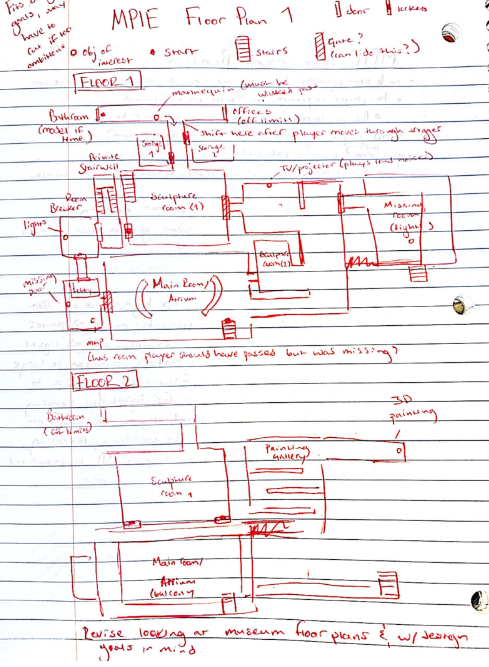 Fits
goals, may
have to
cut if too
ambitious
MPIE Floor Plan 1
door
lockers
Obj of interest
Start
Stairs
Gate?
(can I do this?)
FLOOR 1
mannequin (must be
Bathroom
(model if
time)
offices
(off limits)
Shifts here after player moves through storages
Storage
1
Storage
2
Private
Stairwell
TV/projector (plays loud noises)
Room
Breaker
Sculpture
room (1)
Missing
room
(light)
lights
Sculpture
room (2)
missing
Main Room/
Atrium
map
(has room player should have passed but was missing?
FLOOR 2
Bathroom
(off limits)
3D
painting
Painting
Gallery
Sculpture
room 1
Main room/
Atrium
(balcony
Revise looking at museum floor plans & w/ design
goals in mind